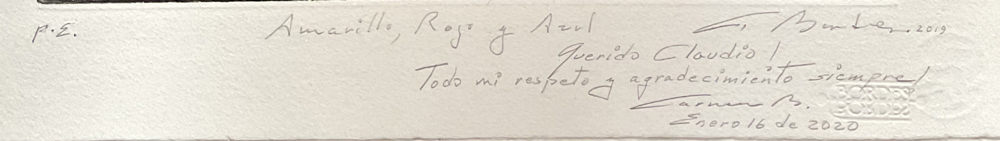 P.E. Amarillo, Rojo y Azul 2019
Querido Claudio!
Todo mi respeto y agradecimiento siempre!
Carmen B.
Enero 16 de 2020